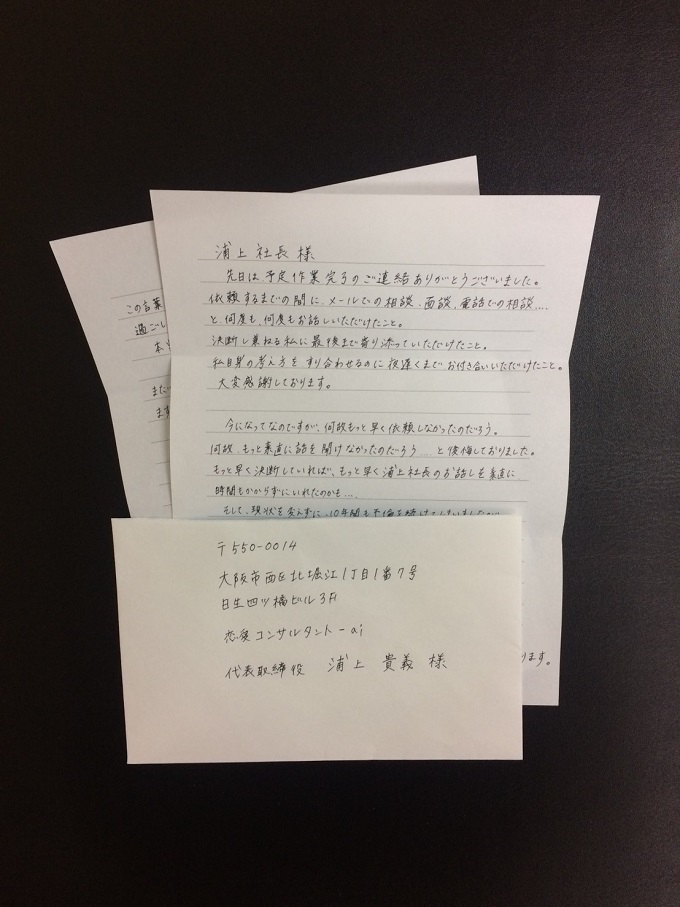 浦上社長様
先日は、予定作業完了のご連絡ありがとうございました。
依頼するまでの間に、メールでの相談、面談、電話での相談....
と、何度も、何度もお話しいただけたこと。
決断し兼ねる私に最後まで寄り添っていただけたこと。
私自身の考え方を すり合わせるのに 夜遅くまで お付き合いいただけたこと。
大変感謝しております。
今になってなのですが、何故もっと早く依頼しなかったのだろう。
何故、もっと素直に話を聞けなかったのだろう....と後悔しておりました。
もっと早く決断していれば、もっと早く浦上社長のお話しを素直に
時間もかからずにいれたのかも....
そして、現状を変えずに、10年間も不倫を続けて
ります。
この言葉
過ごし
本
また
ま
〒550-0014
大阪市西区北堀江1丁目1番7号
日生四ツ橋ビル3Fl
恋愛コンサルタント-ai
代表取締役 浦上 貴義 様